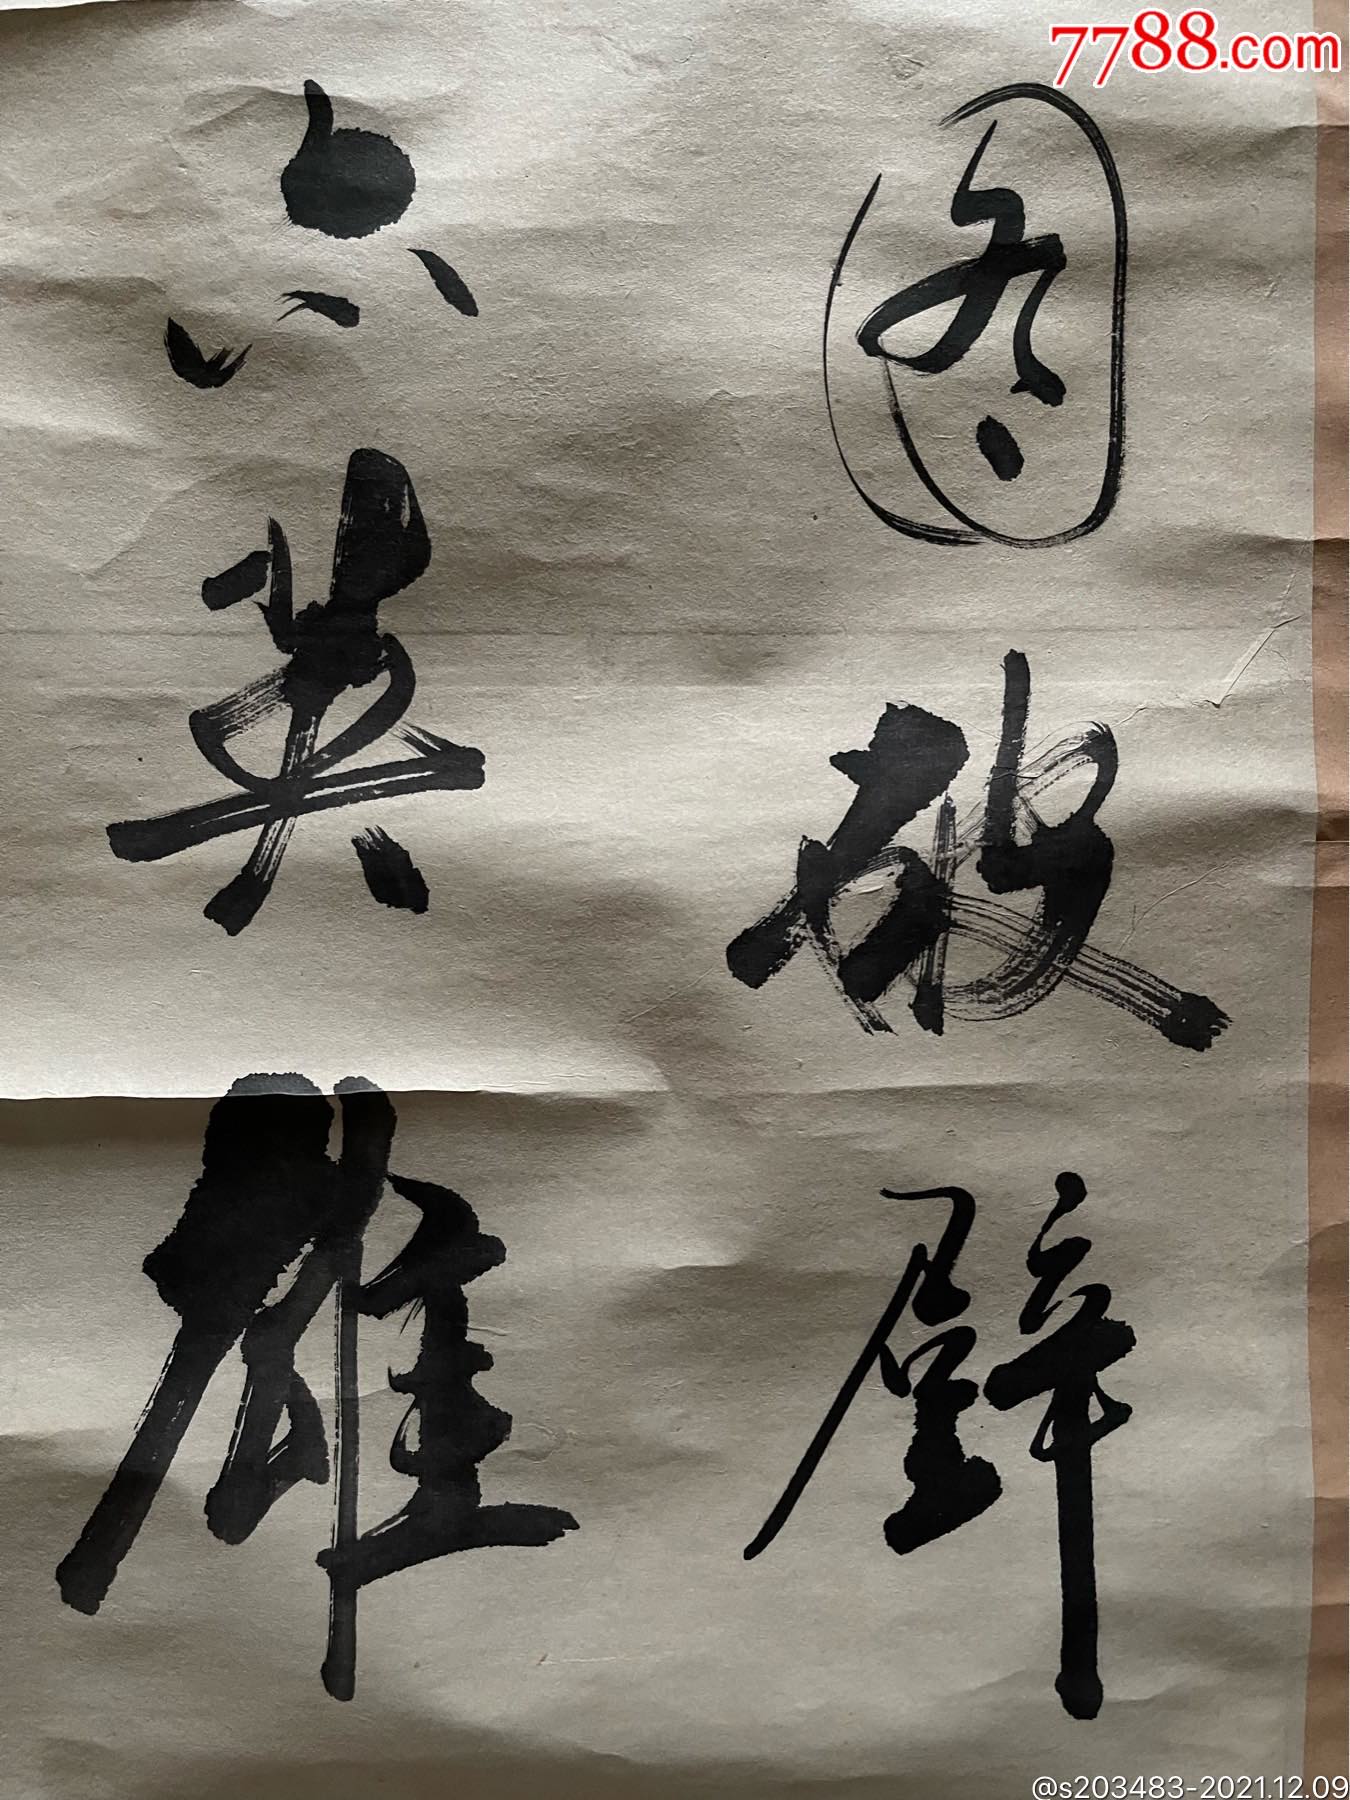 7788.com
图破壁
亦英雄
@s203483-2021.12.09